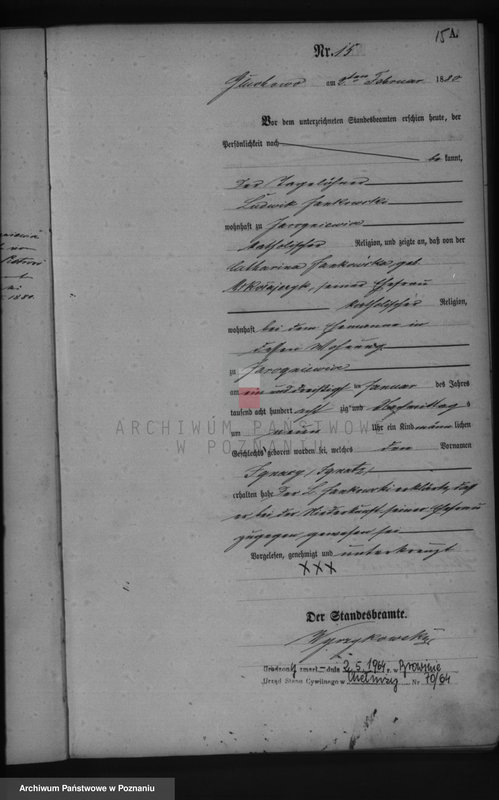 15 A.
Nr. 15
Gluchowo am 2ten Februar 1880
Vor dem unterzeichneten Standesbeamten erschien heute, der
Persönlichkeit nach
be kannt,
der Tagelöhner
Ludwik Jankowski
wohnhaft zu Jarogniewice
katholischer Religion, und zeigte an, daß von der
Catharina Jankowska, geb.
Mikołajczyk, seiner Ehefrau
katholischer Religion,
wohnhaft bei dem Ehemanne in
dessen Wohnung
zu Jarogniewice
am ein und dreißigst en Januar des Jahres
tausend acht hundert acht zig und Nachmittag s
um neun Uhr ein Kind männ lichen
Geschlechts geboren worden sei, welches den Vornamen
Ignacy, Ignatz
erhalten habe. Der L. Jankowski erklärte, daß
er bei der Niederkunft seiner Ehefrau
zugegen gewesen sei
Vorgelesen, genehmigt und unterkreuzt
XXX
Der Standesbeamte.
Wyrzykowski
zmarł dnia 2.5.1964 r. w
Urząd Stanu Cywilnego w Nr 70/64
ARCHIWUM PAŃSTWOWE
W POZNANIU
1880.
Archiwum Państwowe w Poznaniu